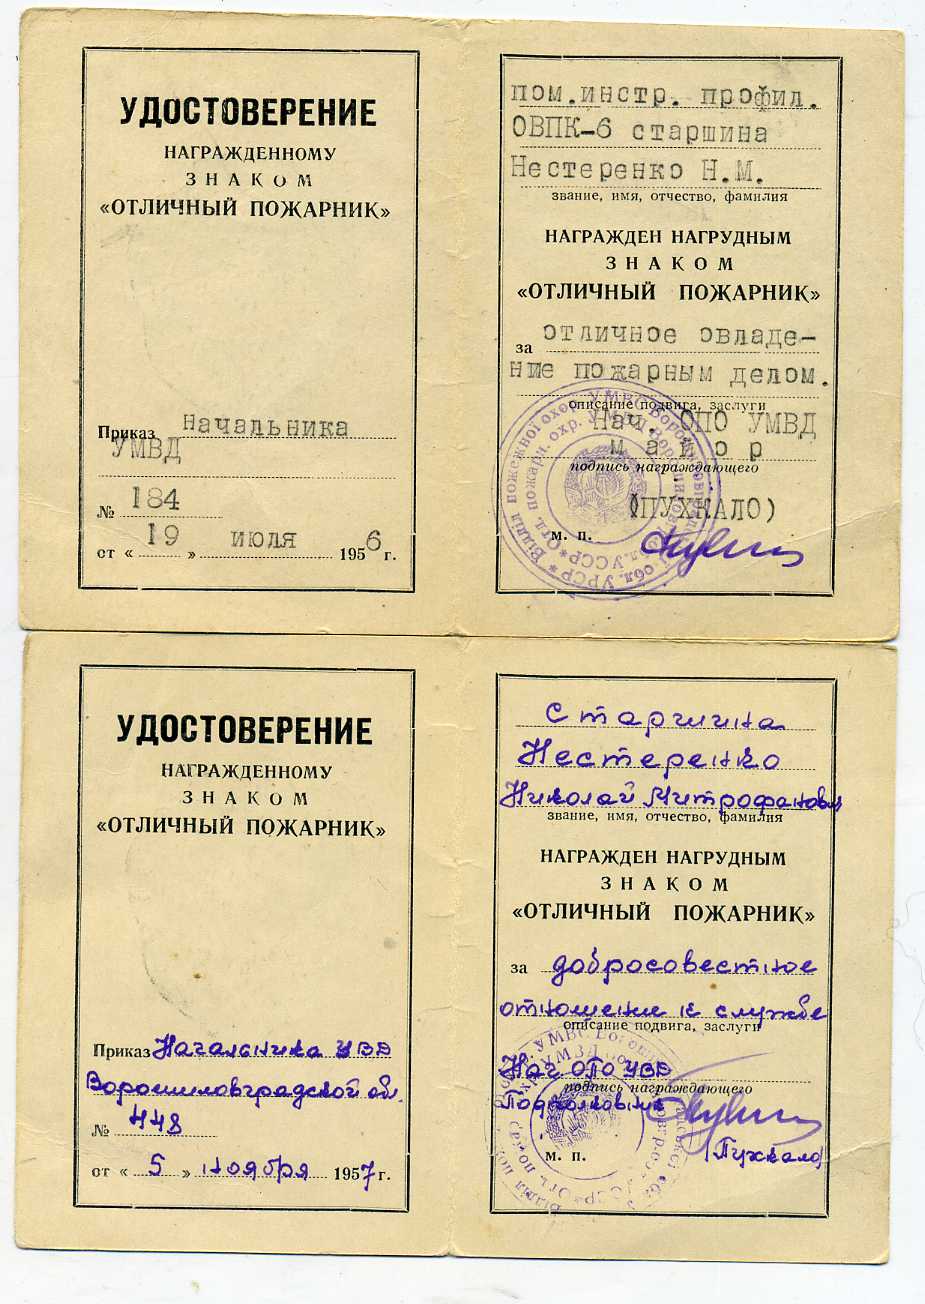 УДОСТОВЕРЕНИЕ
НАГРАЖДЕННОМУ
ЗНАКОМ
«ОТЛИЧНЫЙ ПОЖАРНИК»
Приказ начальника
УМВД
№ 184
от « 19 » июля 1956 г.
пом.инстр. профил.
ОВПК-6 старшина
Нестеренко Н.М.
звание, имя, отчество, фамилия
НАГРАЖДЕН НАГРУДНЫМ
ЗНАКОМ
«ОТЛИЧНЫЙ ПОЖАРНИК»
за отличное овладе-
ние пожарным делом.
описание подвига, заслуги
Нач. ОПО УМВД
майор
подпись награждающего
(ПУХКАЛО)
м. п.
УДОСТОВЕРЕНИЕ
НАГРАЖДЕННОМУ
ЗНАКОМ
«ОТЛИЧНЫЙ ПОЖАРНИК»
Приказ Начальника УВД
Ворошиловградской обл.
№ 448
от « 5 » ноября 1957 г.
Старшина
Нестеренко
Николай Митрофанович
звание, имя, отчество, фамилия
НАГРАЖДЕН НАГРУДНЫМ
ЗНАКОМ
«ОТЛИЧНЫЙ ПОЖАРНИК»
за добросовестное
отношение к службе
описание подвига, заслуги
Нач ОПО УВД
подпись награждающего
Подполковник
м. п.
(Пухкало)